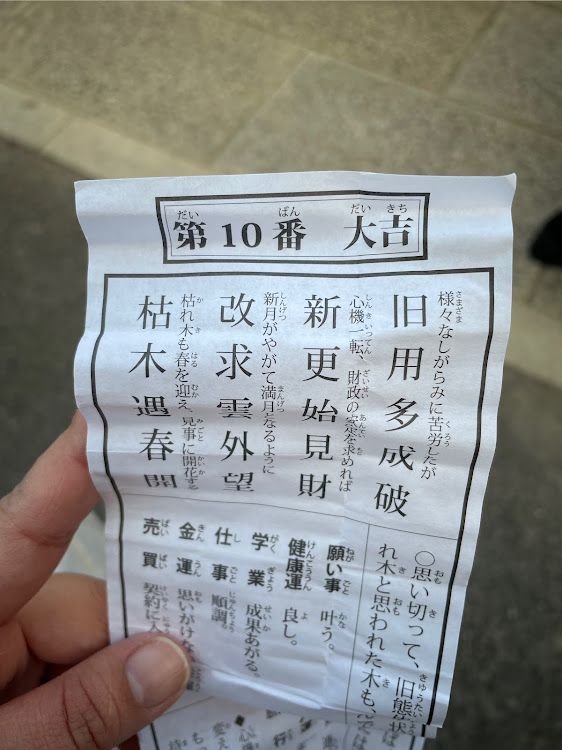 第10番 大吉
旧用多成破
様々なしがらみに苦労したが
新更始見財
心機一転、財政の
求めれば
改求雲外望
新月がやがて満月となるように
枯木遇春開
枯れ木も春を迎え、見事に開花する
〇思い切って、旧態
れ木と思われた木も、
願い事 叶う。
健康運 良し。
学業 成果あがる。
仕事 順調。
金運 思いがけな
売買 契約に